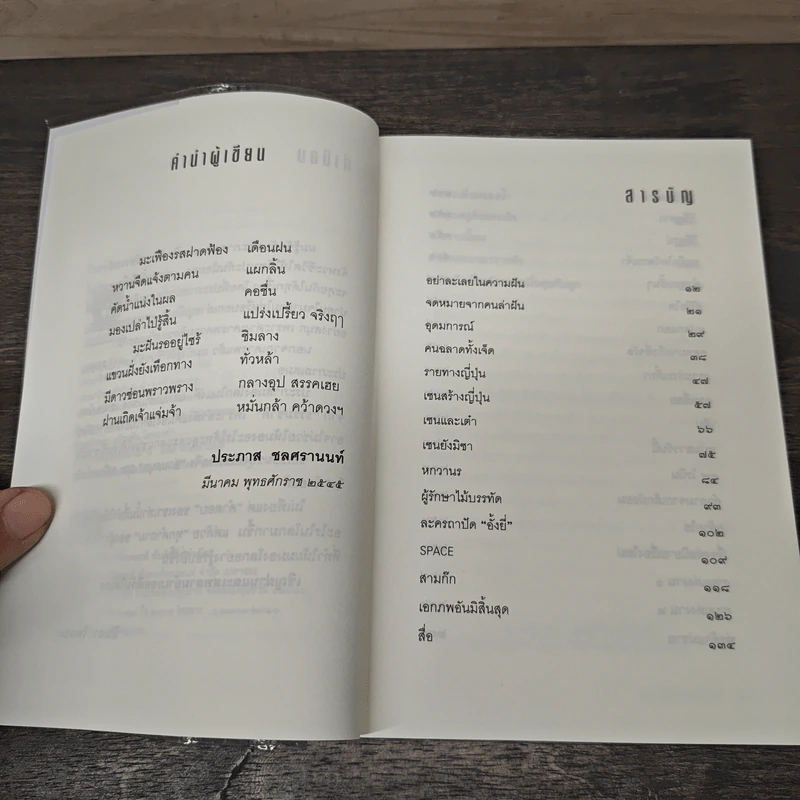 คำนำผู้เขียน
มะเฟืองรสฝาดฟ้อง เดือนฝน
หวานจืดแจ้งตามคน แผกลิ้น
คัดน้ำแน่งในผล คอชื่น
มองเปล่าไปรู้สิ้น แปร่งเปรี้ยว จริงฤๅ
มะฝันรออยู่ไซร้ ซิมลาง
แขวนฝั่งยังเทือกทาง ทั่วหล้า
มีดาวซ่อนพราวพราง กลางอุป สรรคเฮย
ฝานเกิดเจ้าแจ่มจ้า หมั่นกล้า คว้าดวงฯ
ประภาส ชลศรานนท์
มีนาคม พุทธศักราช ๒๕๔๕
สารบัญ
อย่าละเลยในความฝัน ๑๒
จดหมายจากคนล่าฝัน ๒๑
อุดมการณ์ ๒๙
คนฉลาดทั้งเจ็ด ๓๘
รายทางญี่ปุ่น ๔๗
เซนสร้างญี่ปุ่น ๕๗
เซนและเต๋า ๖๖
เซนยังมิซา ๗๕
หกวานร ๘๔
ผู้รักษาไม้บรรทัด ๙๓
ละครถาปัด “อั้งยี่” ๑๐๒
SPACE ๑๐๙
สามก๊ก ๑๑๘
เอกภพอันมิสิ้นสุด ๑๒๖
สื่อ ๑๓๔